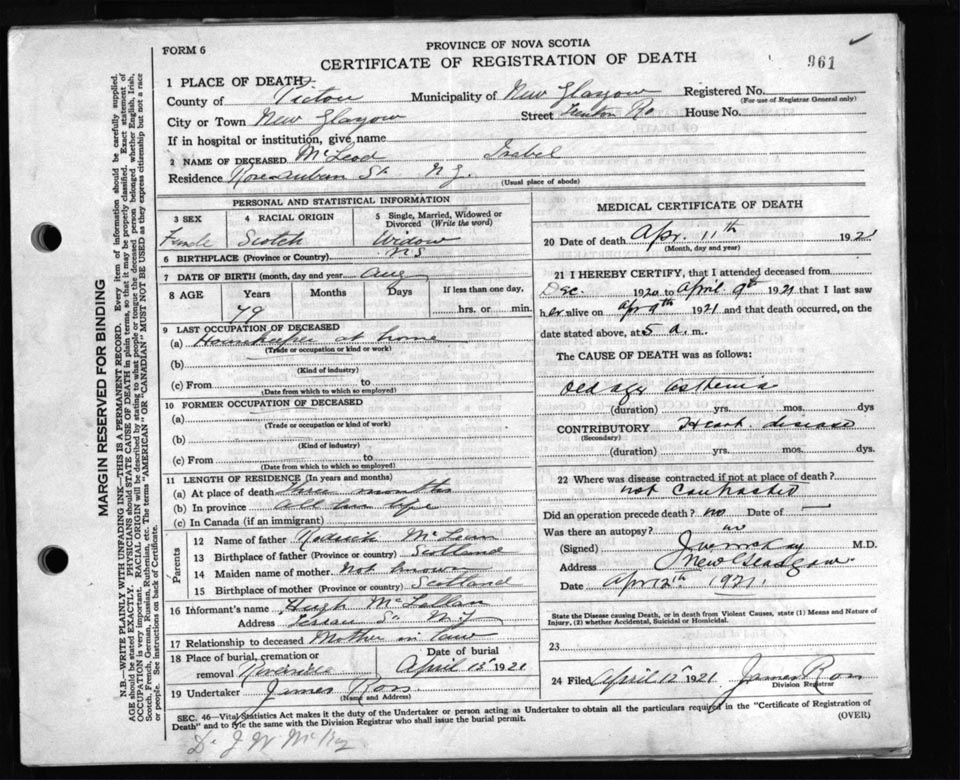 FORM 6
PROVINCE OF NOVA SCOTIA
CERTIFICATE OF REGISTRATION OF DEATH
961
1 PLACE OF DEATH
County of Pictou Municipality of New Glasgow Registered No.
(For use of Registrar General only)
City or Town New Glasgow Street Trenton Rd House No.
If in hospital or institution, give name
2 NAME OF DECEASED McLeod Isabel
Residence St N.G.
(Usual place of abode)
MARGIN RESERVED FOR BINDING
N.B.—WRITE PLAINLY WITH UNFADING INK—THIS IS A PERMANENT RECORD. Every item of information should be carefully supplied.
AGE should be stated EXACTLY. PHYSICIANS should STATE CAUSE OF DEATH in plain terms, so that it may be properly classified. Exact statement of
OCCUPATION is very important. RACIAL ORIGIN will be described by stating to what people or tongue the deceased person belonged whether English, Irish,
Scotch, French, German, Russian, Ruthenian, etc. The terms "AMERICAN" OR "CANADIAN" MUST NOT BE USED as they express citizenship but not a race
or people. See instructions on back of Certificate.
PERSONAL AND STATISTICAL INFORMATION
3 SEX 4 RACIAL ORIGIN 5 Single, Married, Widowed or Divorced (Write the word)
Female Scotch Widow
6 BIRTHPLACE (Province or Country) NS
7 DATE OF BIRTH (month, day and year) Aug
8 AGE Years Months Days If less than one day,
79 hrs. or min.
9 LAST OCCUPATION OF DECEASED
(a) Housekeeper at home
(Trade or occupation or kind or work)
(b)
(Kind of industry)
(c) From to
(Date from which to which so employed)
10 FORMER OCCUPATION OF DECEASED
(a)
(Trade or occupation or kind of work)
(b)
(Kind of industry)
(c) From to
(Date from which to which so employed)
11 LENGTH OF RESIDENCE (In years and months)
(a) At place of death three months
(b) In province All her life
(c) In Canada (if an immigrant)
Parents
12 Name of father Roderick
13 Birthplace of father (Province or country) Scotland
14 Maiden name of mother Not known
15 Birthplace of mother (Province or country) Scotland
16 Informant's name Hugh McLellan
Address St N.G.
17 Relationship to deceased Mother in law
18 Place of burial, cremation or removal Riverside
Date of burial
April 13 1921
19 Undertaker James Ross
(Name and Address)
MEDICAL CERTIFICATE OF DEATH
20 Date of death Apr. 11th 1921
(Month, day and year)
21 I HEREBY CERTIFY, that I attended deceased from
Dec. 1920 to April 9th 1921 that I last saw
her alive on Ap 9th 1921 and that death occurred, on the
date stated above, at 5 a.m.
The CAUSE OF DEATH was as follows:
Old age Asthenia
(duration) yrs. mos. dys
CONTRIBUTORY Heart disease
(Secondary)
(duration) yrs. mos. dys
22 Where was disease contracted if not at place of death?
not Contracted
Did an operation precede death? no Date of —
Was there an autopsy? no
(Signed) J W McKay M.D.
Address New Glasgow
Date Apr 12th 1921.
State the Disease causing Death, or in death from Violent Causes, state (1) Means and Nature of
Injury, (2) whether Accidental, Suicidal or Homicidal.
23
24 Filed April 12 1921 James Ross
Division Registrar
SEC. 46—Vital Statistics Act makes it the duty of the Undertaker or person acting as Undertaker to obtain all the particulars required in the "Certificate of Registration of
Death" and to fyle the same with the Division Registrar who shall issue the burial permit.
(OVER)
Dr J W McKay